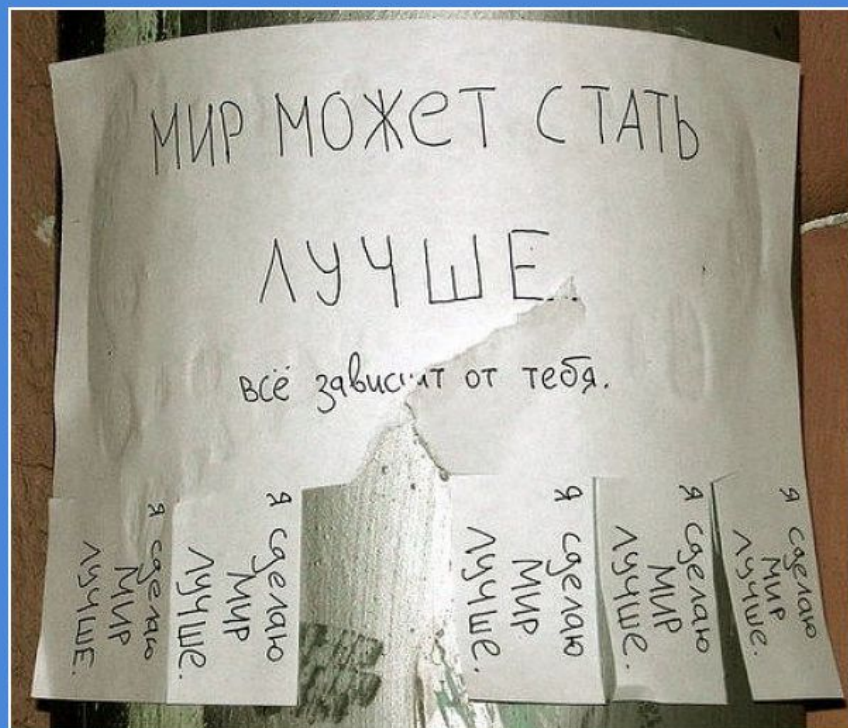 МИР МОЖЕТ СТАТЬ
ЛУЧШЕ.
всё зависит от тебя.
Я сделаю
МИР
ЛУЧШЕ.
Я сделаю
МИР
ЛУЧШЕ.
Я сделаю
МИР
ЛУЧШЕ.
Я сделаю
МИР
ЛУЧШЕ.
Я сделаю
МИР
ЛУЧШЕ.